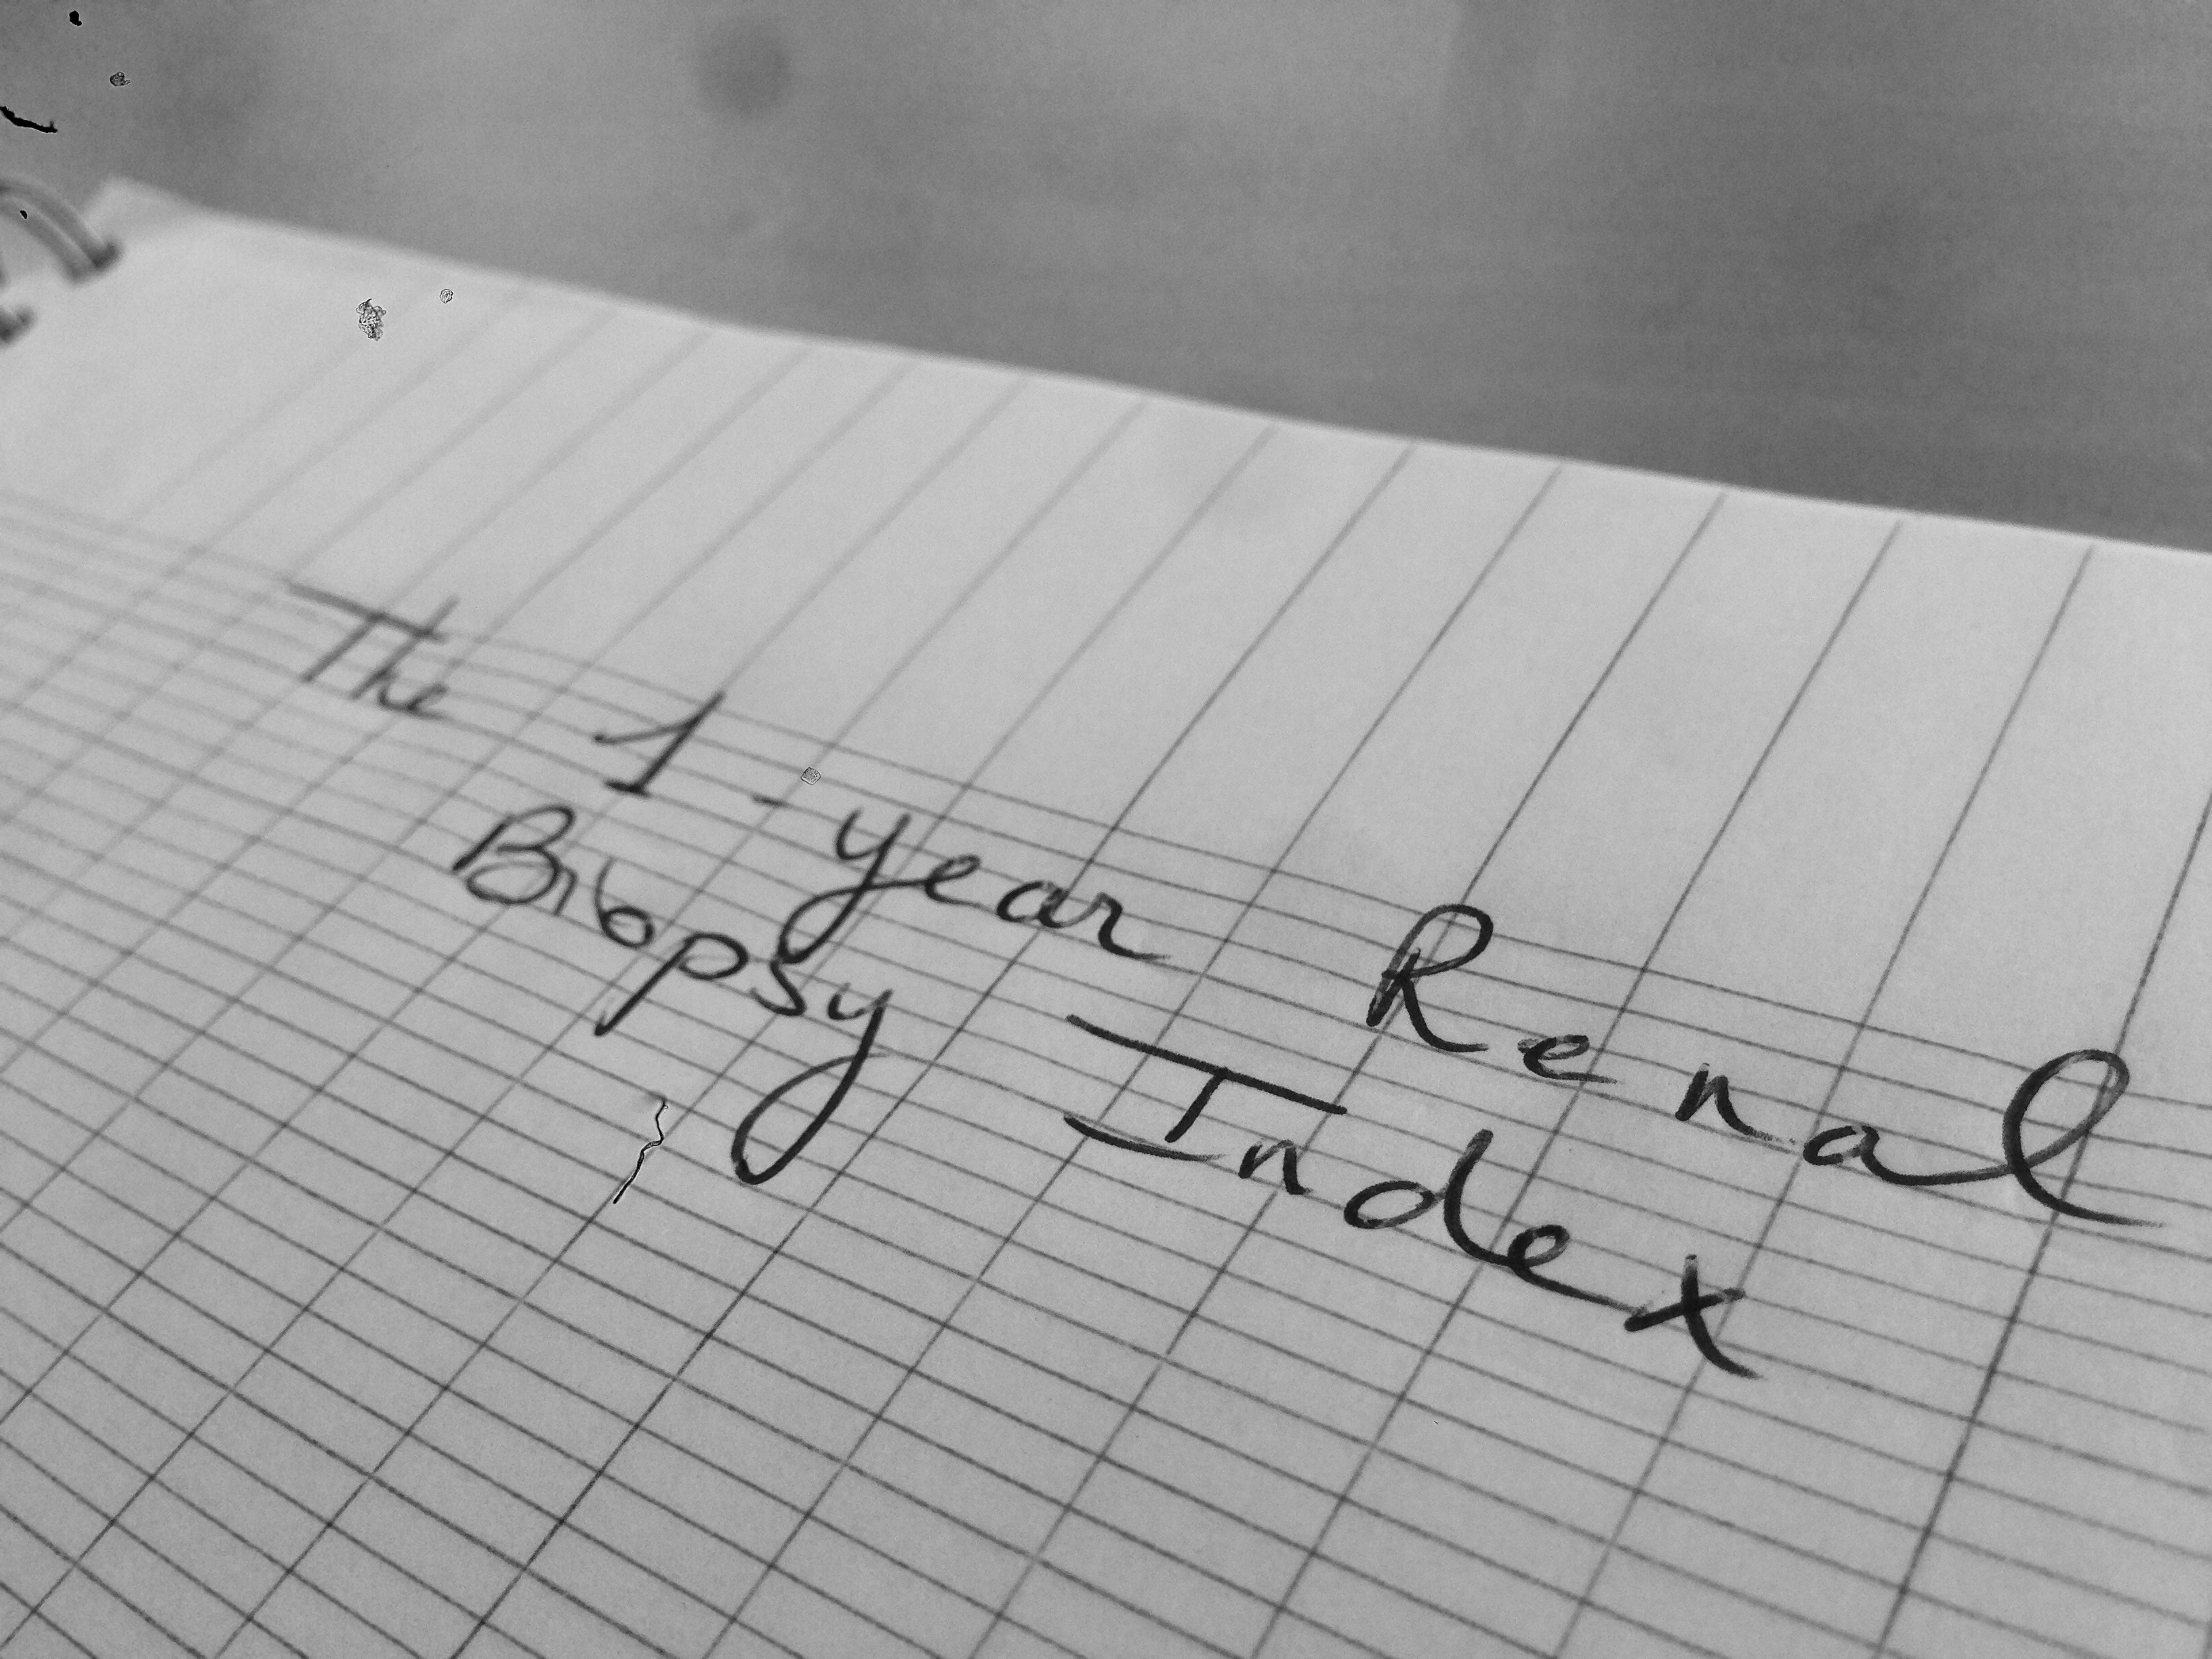 The 1-year Renal
Biopsy Index